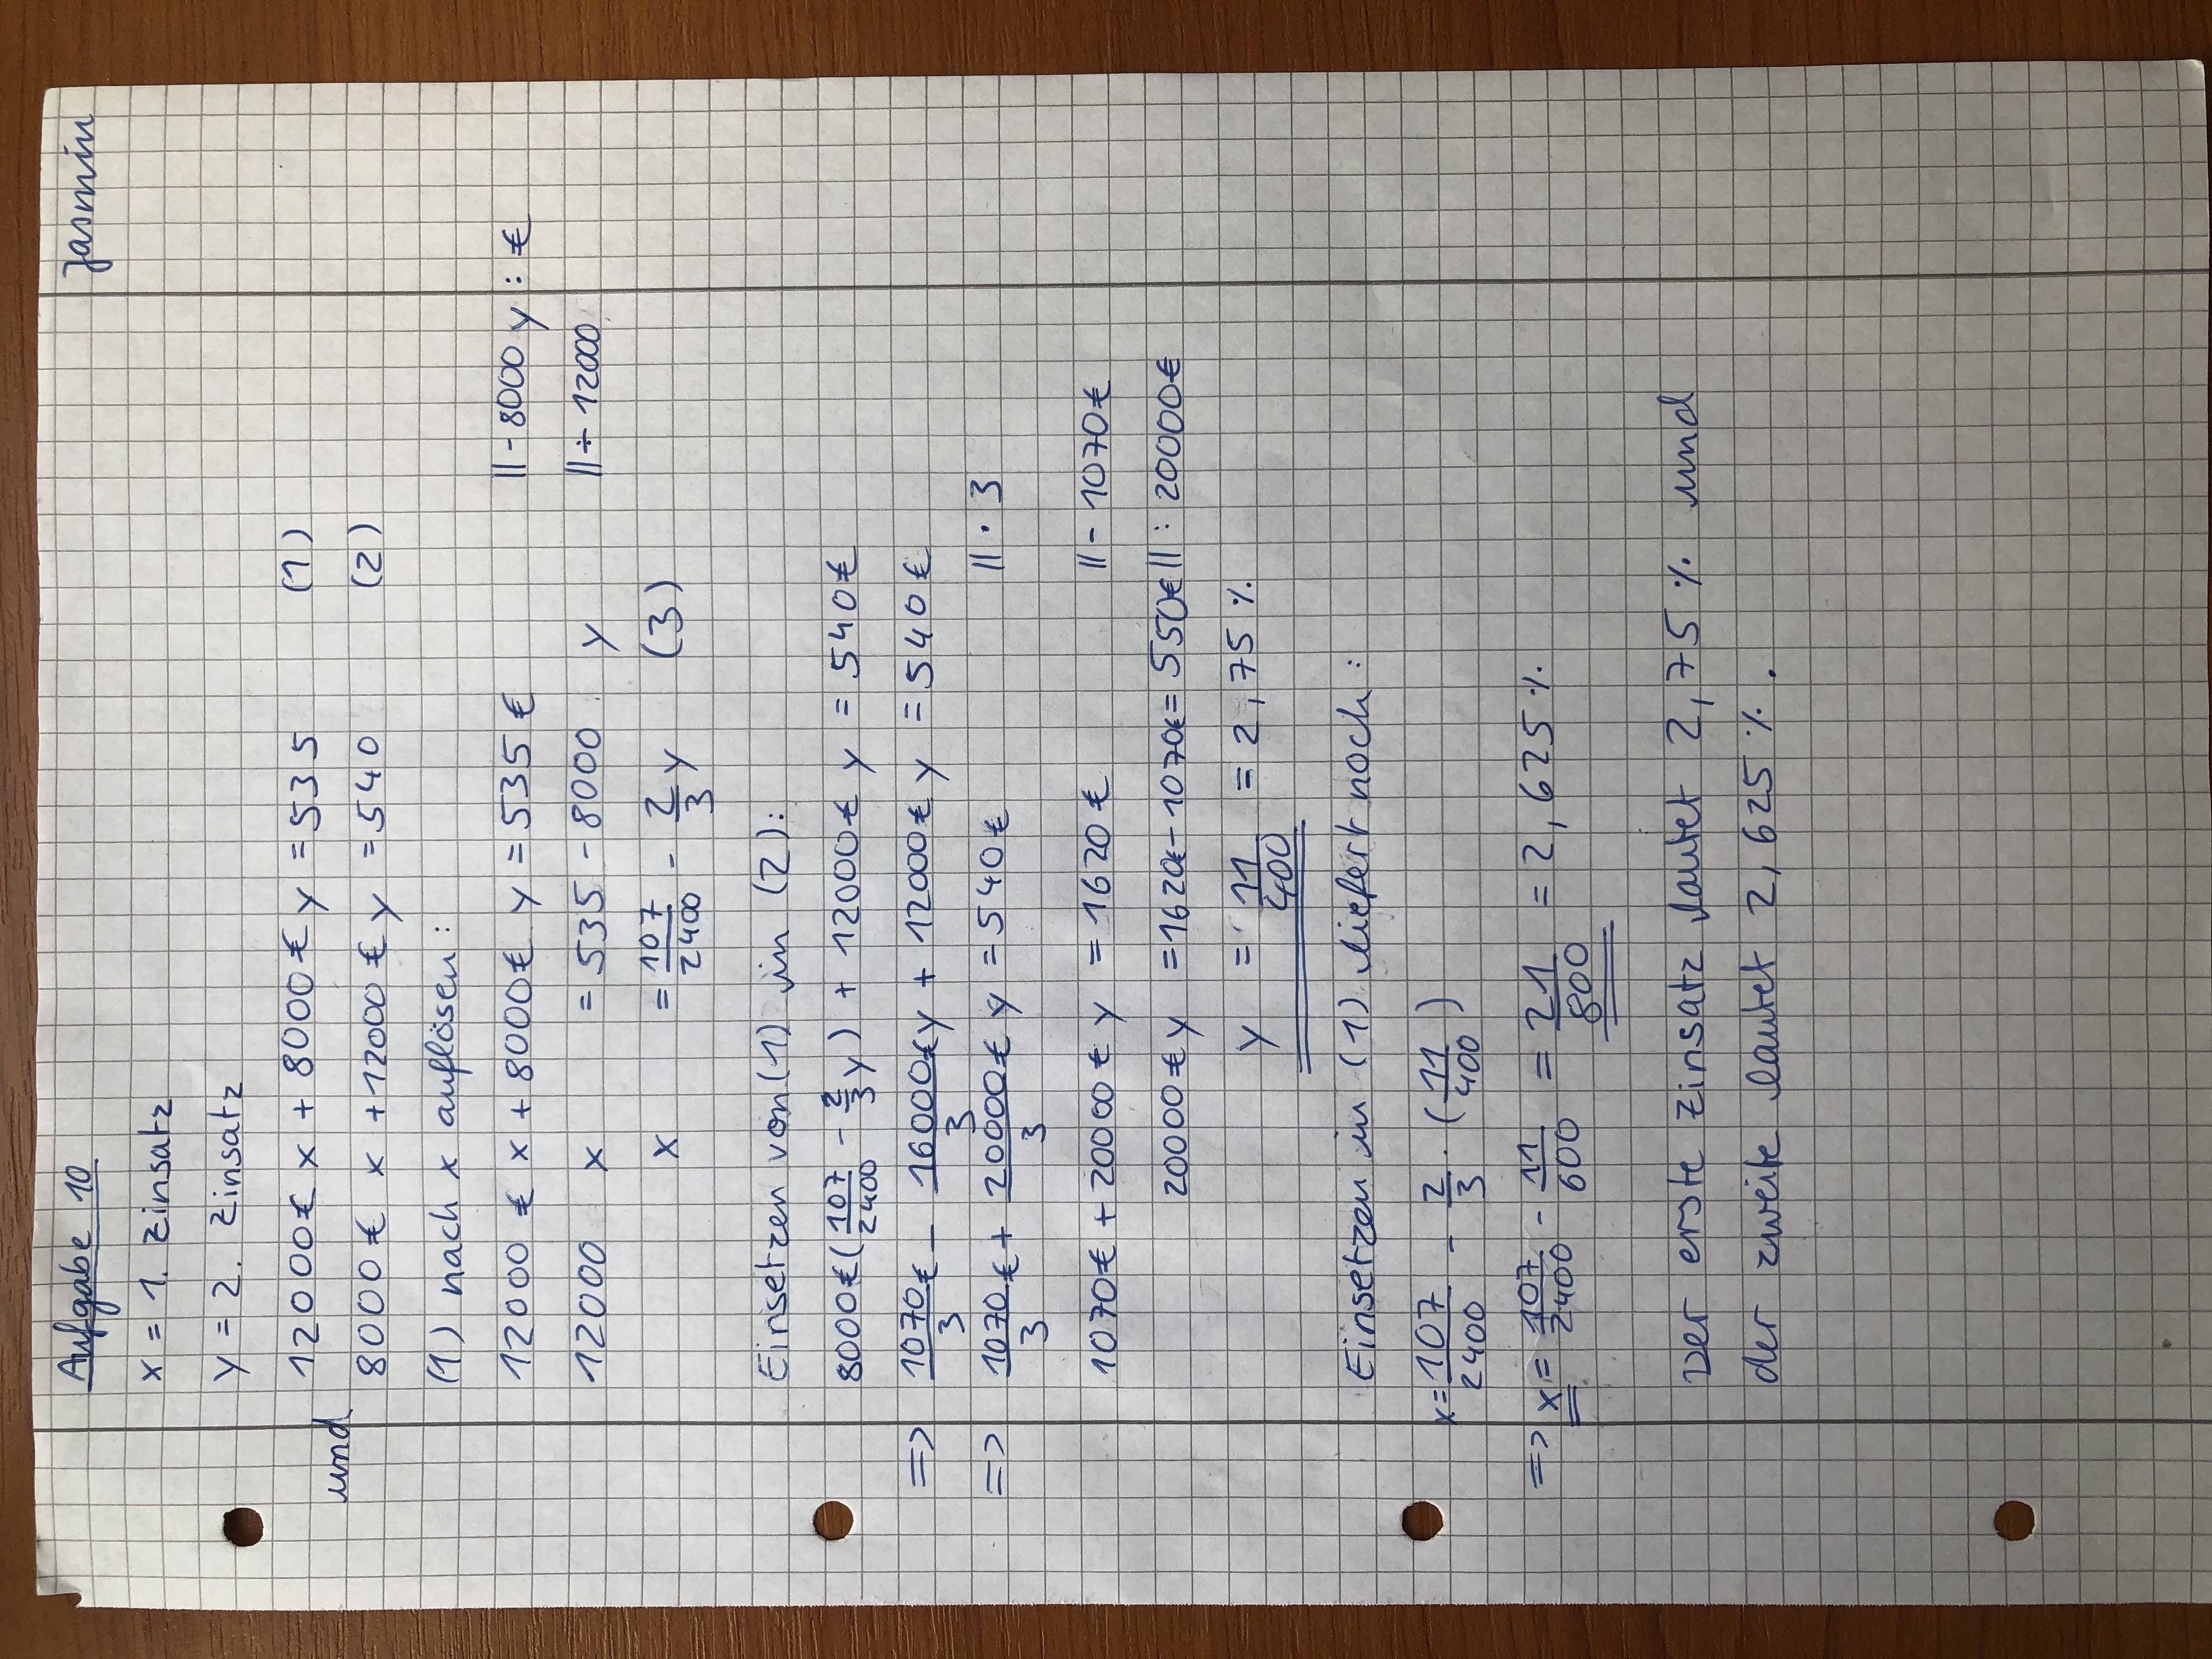 Jasmin
Aufgabe 10
x = 1. Zinsatz
y = 2. Zinsatz
12000€ x + 8000€ y = 535 (1)
und 8000€ x + 12000€ y = 540 (2)
(1) nach x auflösen:
12000 € x + 8000€ y = 535 € || - 8000 y : €
12000 x = 535 - 8000 y || ÷ 12000
x = 107/2400 - 2/3 y (3)
Einsetzen von (1) in (2):
8000€ (107/2400 - 2/3 y) + 12000€ y = 540€
=> 1070€/3 - 16000€/3 y + 12000€ y = 540€
=> 1070€/3 + 20000€/3 y = 540€ || · 3
1070€ + 20000€ y = 1620€ || - 1070€
20000€ y = 1620€ - 1070€ = 550€ || : 20000€
y = 11/400 = 2,75 %
Einsetzen in (1) liefert noch:
x = 107/2400 - 2/3 · (11/400)
=> x = 107/2400 - 11/600 = 21/800 = 2,625 %
Der erste Zinsatz lautet 2,75 % und
der zweite lautet 2,625 %.